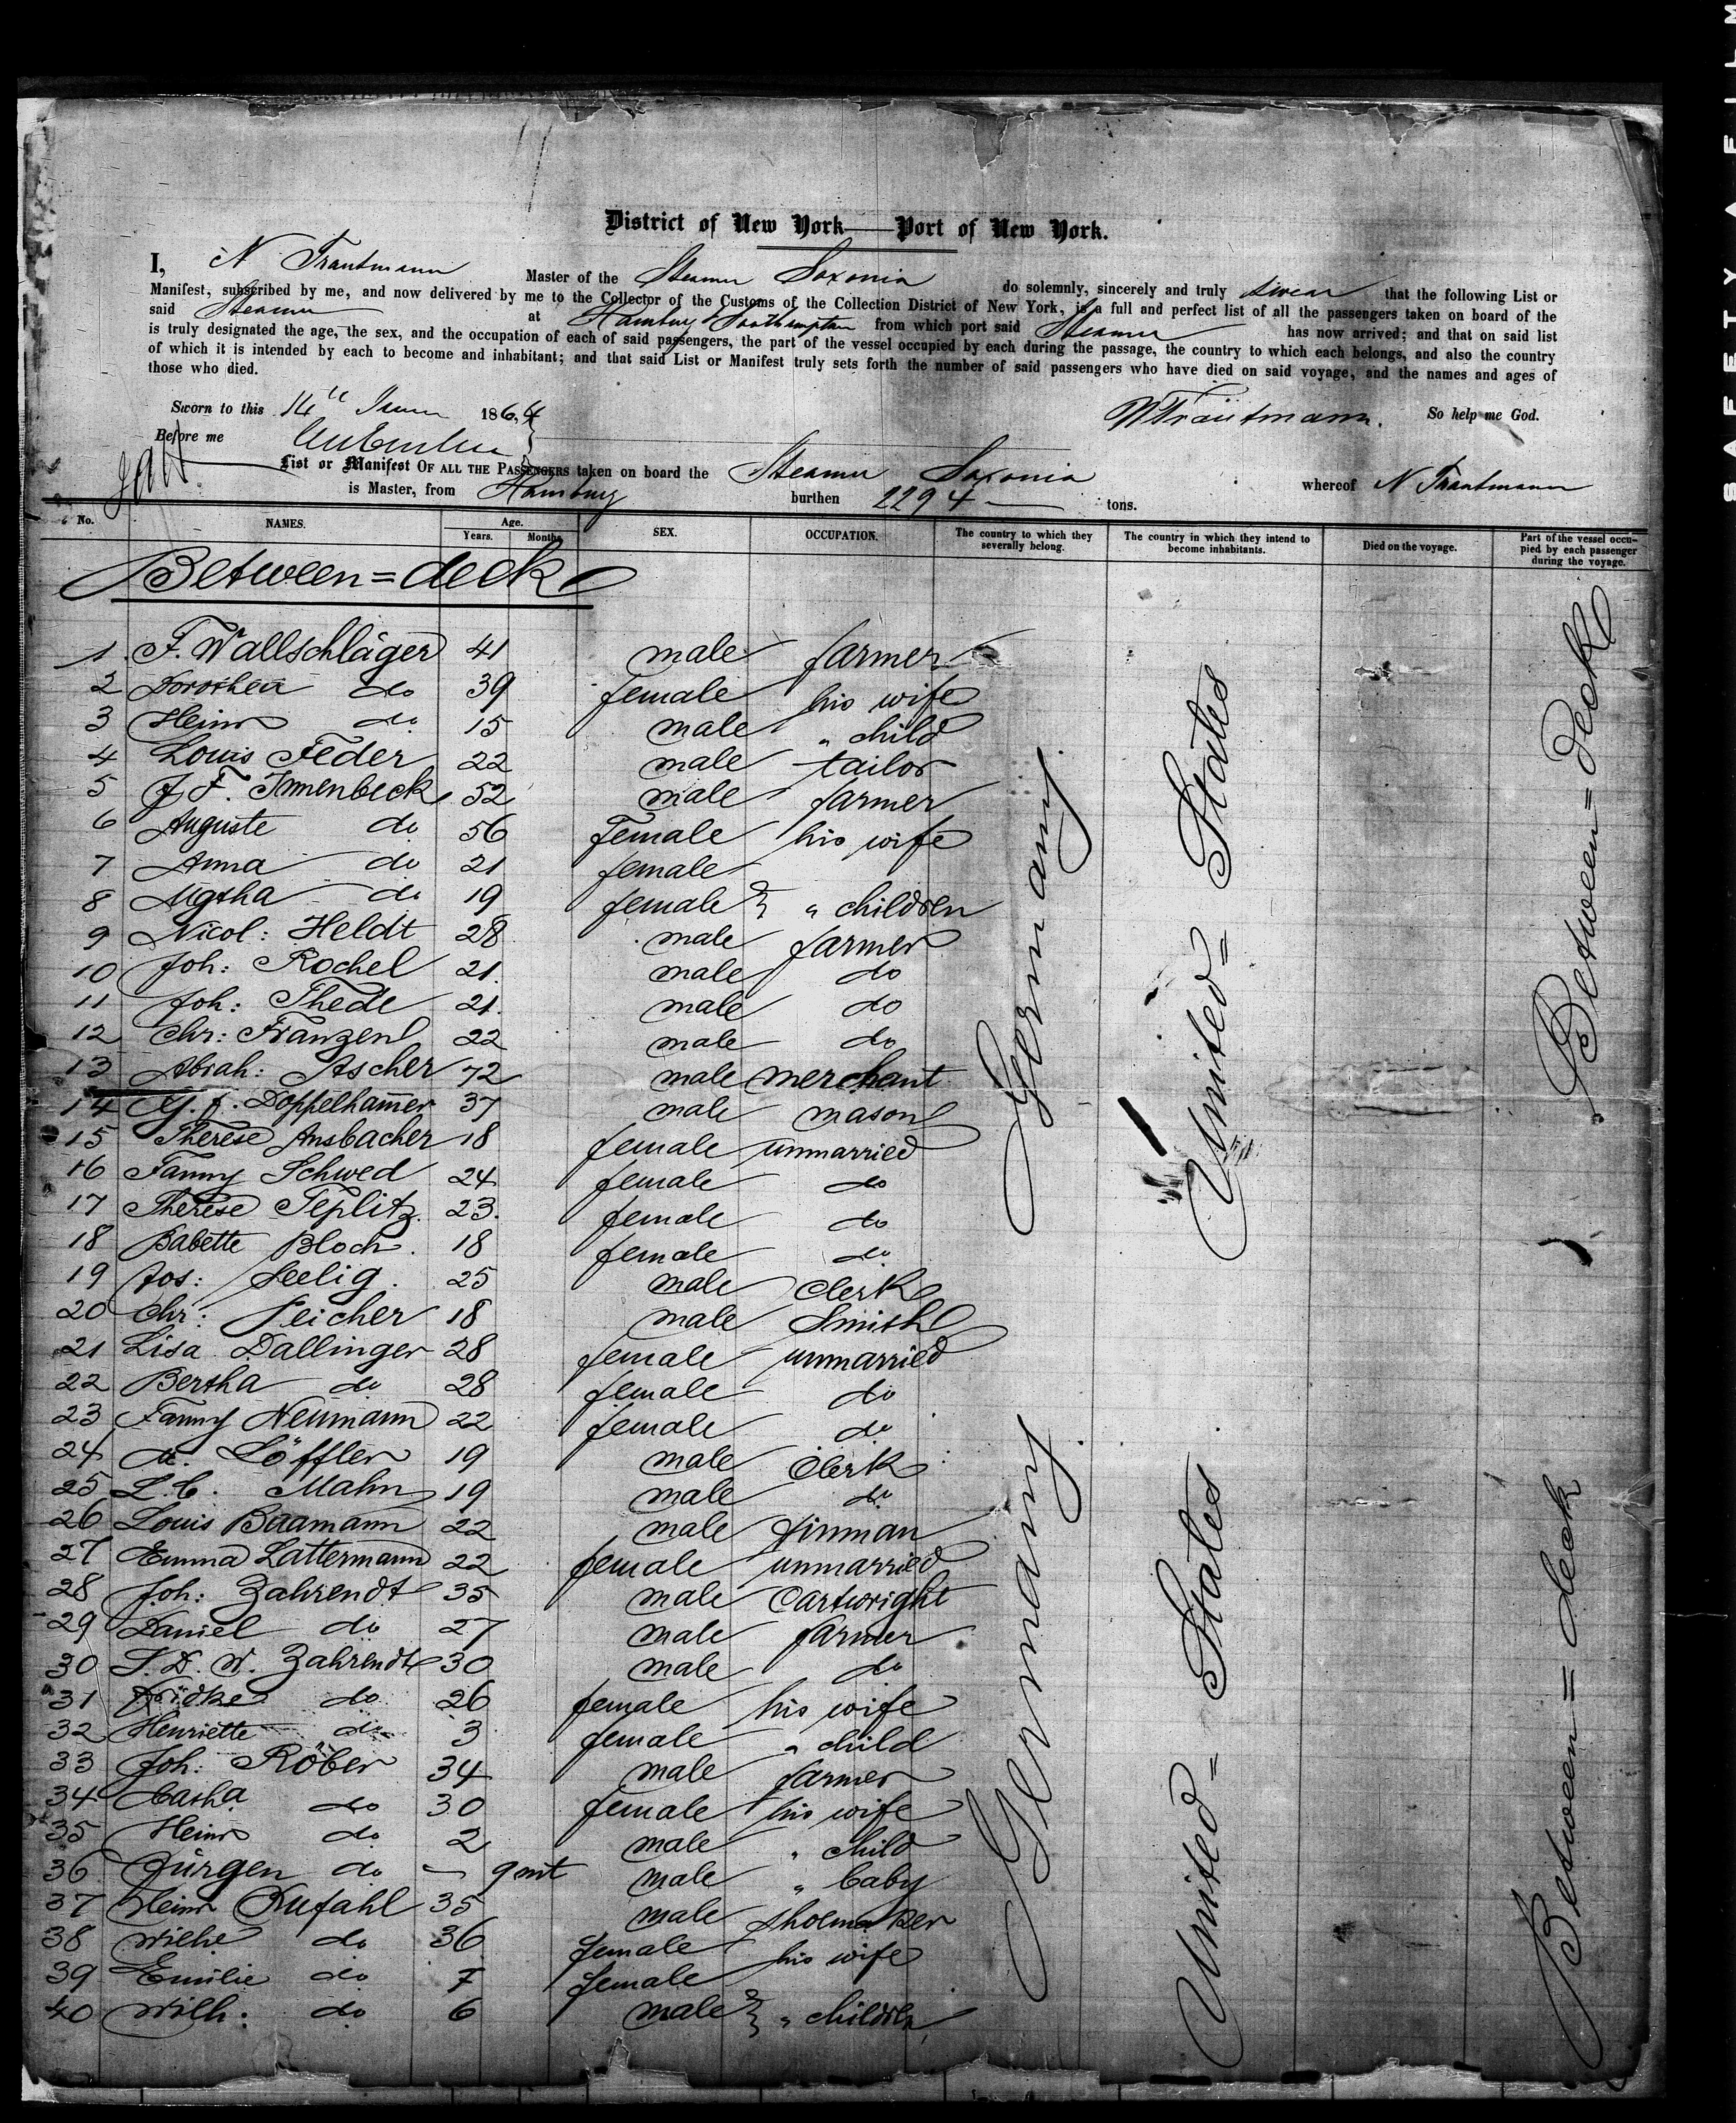 District of New York—Port of New York.
I, N Trautmann Master of the Steamer Saxonia do solemnly, sincerely and truly swear that the following List or
Manifest, subscribed by me, and now delivered by me to the Collector of the Customs of the Collection District of New York, is a full and perfect list of all the passengers taken on board of the
said Steamer at Hamburg & Southampton from which port said Steamer has now arrived; and that on said list
is truly designated the age, the sex, and the occupation of each of said passengers, the part of the vessel occupied by each during the passage, the country to which each belongs, and also the country
of which it is intended by each to become and inhabitant; and that said List or Manifest truly sets forth the number of said passengers who have died on said voyage, and the names and ages of
those who died.
Sworn to this 14th June 1864 NTrautmann. So help me God.
Before me
List or Manifest OF ALL THE PASSENGERS taken on board the Steamer Saxonia whereof N Trautmann
is Master, from Hamburg burthen 2294 tons.
No. NAMES. Age. Years. Months. SEX. OCCUPATION. The country to which they severally belong. The country in which they intend to become inhabitants. Died on the voyage. Part of the vessel occupied by each passenger during the voyage.
Between=deck
1 F. Wallschläger 41 male farmer
2 Dorothea do 39 female his wife
3 Heinr do 15 male " child
4 Louis Feder 22 male tailor
5 J. F. Immenbeck 52 male farmer
6 Auguste do 56 female his wife
7 Anna do 21 female
8 Mgtha do 19 female } " children
9 Nicol: Heldt 28 male farmer
10 Joh: Rochel 21. male do
11 Joh: Thede 21. male do
12 Chr: Franzen 22 male do
13 Abrah: Ascher 72 male merchant
14 G. J. Doppelhamer 37 male mason
15 Therese Ansbacher 18 female unmarried
16 Fanny Schwed 24 female do
17 Therese Teplitz. 23. female do
18 Babette Bloch. 18 female do
19 Jos: Seelig. 25 male Clerk
20 Chr: Peicher 18 male Smith
21 Lisa Dallinger 28 female unmarried
22 Bertha do 28 female do
23 Fanny Neumann 22 female do
24 Löffler 19 male Clerk
25 L. C. Mahn 19 male do
26 Louis Baamann 22 male finman
27 Emma Lattermann 22 female unmarried
28 Joh: Zahrendt 35 male Cartwright
29 Daniel do 27 male farmer
30 S. D. W. Zahrendt 30 male do
31 Fridke do 26 female his wife
32 Henriette do 3 female " child
33 Joh: Röber 34 male farmer
34 Catha do 30 female his wife
35 Heinr do 2 male " child
36 Jürgen do — 9 mt male " baby
37 Heinr Kufahl 35 male shoemaker
38 Wilhe do 36 female his wife
39 Emilie do 7 female
40 Wilh: do 6 male } " children
Germany.
United=States
Between=deck
Germany.
United=States
Between=deck
SAFETY FILM